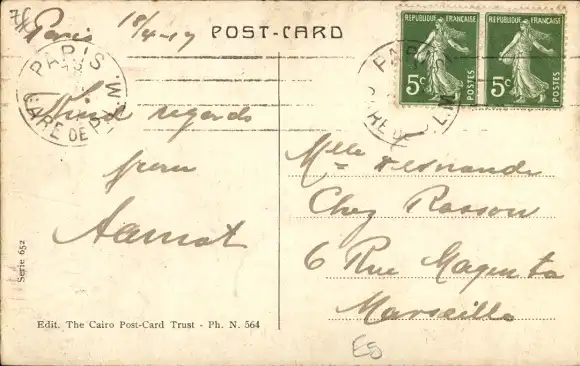 Paris 18/4-17
POST-CARD
REPUBLIQUE FRANÇAISE
5c
POSTES
REPUBLIQUE FRANÇAISE
5c
POSTES
PARIS
GARE DE P.L.M.
PARIS
GARE DE P.L.M.
Kind regards
from
Mlle Fernande
Chez Rasson
6 Rue Magenta
Marseille
Serie 652
Edit. The Cairo Post-Card Trust - Ph. N. 564